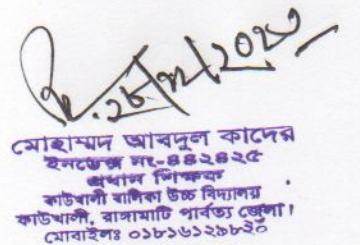 মোহাম্মদ আবদুল কাদের
ইনডেক্স নং-৪৪২৪২৫
প্রধান শিক্ষক
কাউখালী বালিকা উচ্চ বিদ্যালয়
কাউখালী, রাঙ্গামাটি পার্বত্য জেলা।
মোবাইলঃ ০১৮১৬১২৯৮২০